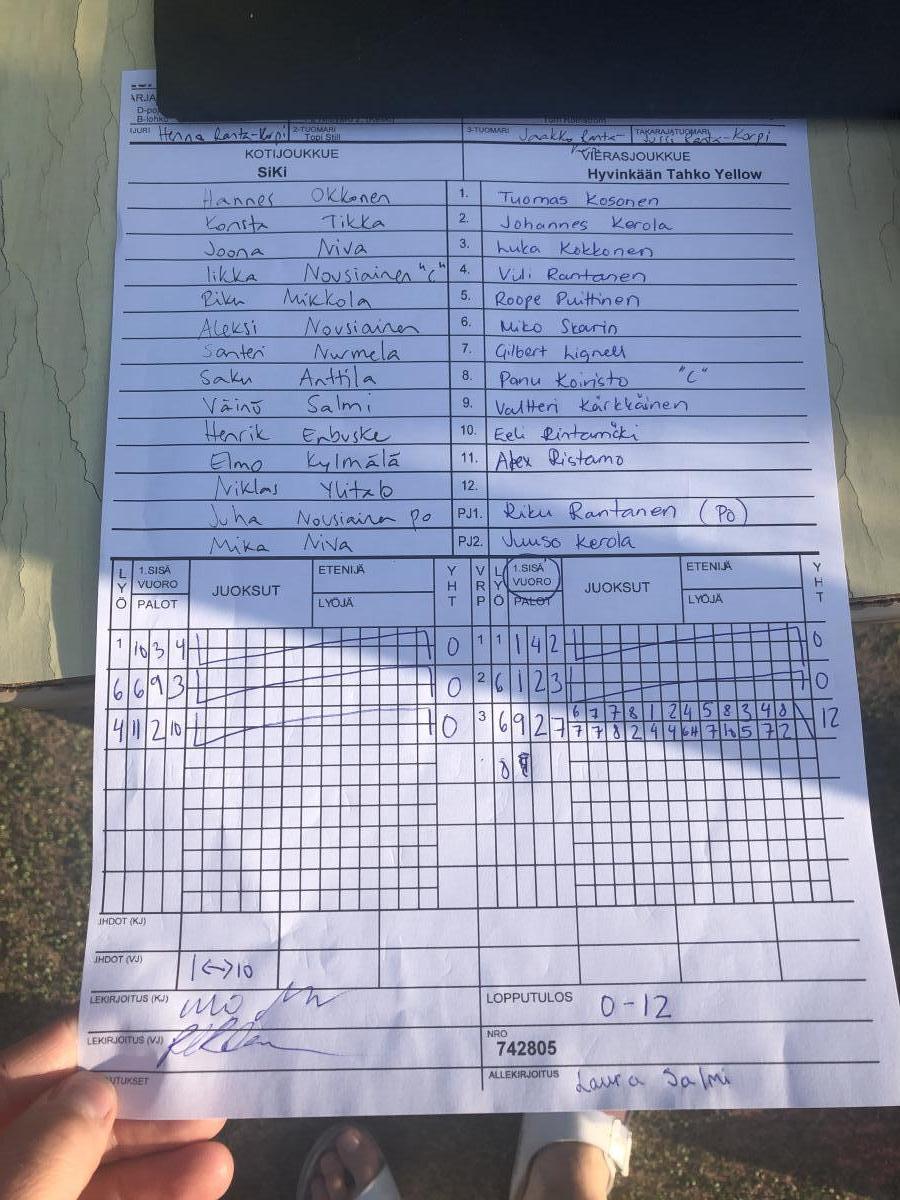 D-po
B-lohko
Henna Ranta-Korpi 2-TUOMARI Topi Still 3-TUOMARI Jaakko Ranta- TAKARAJATUOMARI Jussi Ranta-Korpi
KOTIJOUKKUE VIERASJOUKKUE
SiKi Hyvinkään Tahko Yellow
Hannes Okkonen 1. Tuomas Kosonen
Konsta Tikka 2. Johannes Kerola
Joona Niva 3. Luka Kokkonen
Iikka Nousiainen "C" 4. Vili Rantanen
Riku Mikkola 5. Roope Puittinen
Aleksi Nousiainen 6. Miko Skarin
Santeri Nurmela 7. Gilbert Lignell
Saku Anttila 8. Panu Koivisto "C"
Väinö Salmi 9. Valtteri Kärkkäinen
Henrik Enbuske 10. Eeli Rintamäki
Elmo Kylmälä 11. Alex Ristamo
Niklas Ylitalo 12.
Juha Nousiainen PO PJ1. Riku Rantanen (PO)
Mika Niva PJ2. Juuso Kerola
LYÖ 1.SISÄ VUORO PALOT JUOKSUT ETENIJÄ LYÖJÄ YHT VRP LYÖ 1.SISÄ VUORO PALOT JUOKSUT ETENIJÄ LYÖJÄ YHT
1 10 3 4 0 1 1 1 4 2 0
6 6 9 3 0 2 6 1 2 3 0
4 11 2 10 0 3 6 9 2 7 6 7 7 8 1 2 4 5 8 3 4 8 12
7 7 8 2 4 4 7 10 5 7 2
8
JHDOT (KJ)
JHDOT (VJ) 1<->10
LEKIRJOITUS (KJ) LOPPUTULOS 0-12
LEKIRJOITUS (VJ) NRO 742805
UTUKSET ALLEKIRJOITUS Laura Salmi